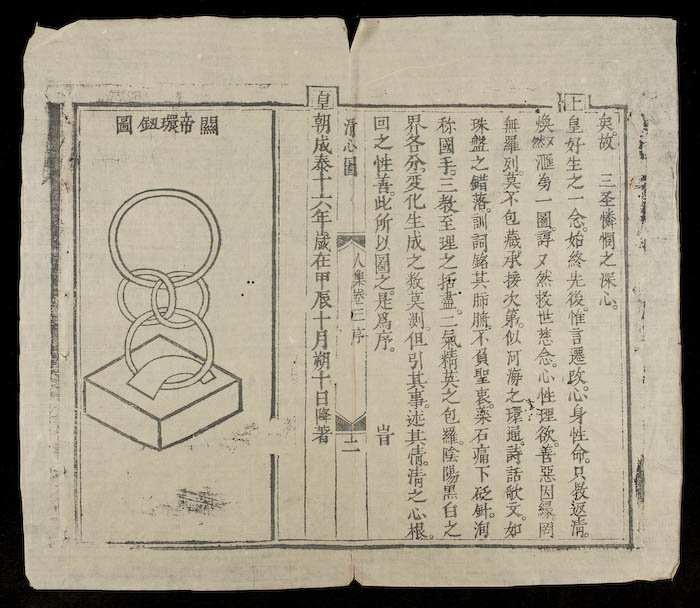 矣。故 三圣憐憫之深心。
上皇好生之一念。始終先後。惟言遷改。心身性命。只教返清。
煥又然滙為一圖。諄又然救世慈念。心性理欲。善惡因緣。罔
無羅列。莫不包藏。承接次第。似河海之環通。詩話歌文。如
珠盤之錯落。訓詞銘其肺腑。不負聖衷。藥石痛下砭針。洵
称國手。三教至理之括盡。二氣精英之包羅。陰陽黑白之
界各分。変化生成之数莫測。但引其事。述其情。清之心根。
回之性善。此所以圖之。是爲序。
皇朝成泰十六年歲在甲辰十月朔十日降著
清心圖
人集卷三序
十二
關帝環釼圖